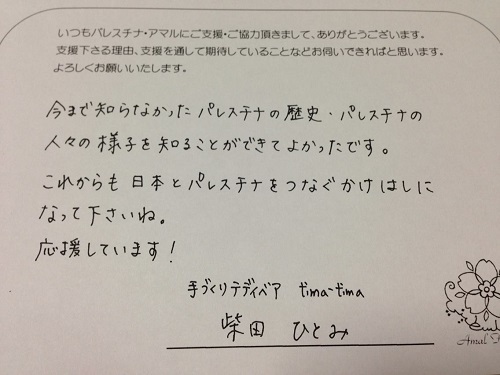 いつもパレスチナ・アマルにご支援・ご協力頂きまして、ありがとうございます。
支援下さる理由、支援を通して期待していることなどお伺いできればと思います。
よろしくお願いいたします。
今まで知らなかったパレスチナの歴史・パレスチナの
人々の様子を知ることができてよかったです。
これからも日本とパレスチナをつなぐかけはしに
なって下さいね。
応援しています！
手づくりテディベア tima-tima
柴田 ひとみ
Amal